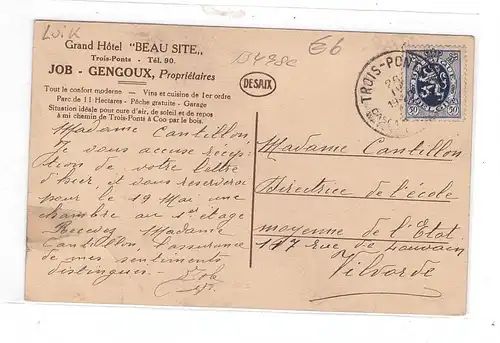 Luik
Grand Hôtel "BEAU SITE,,
Trois-Ponts - Tél. 90.
JOB - GENGOUX, Propriétaires
Tout le confort moderne - Vins et cuisine de 1er ordre
Parc de 11 Hectares - Pêche gratuite - Garage
Situation idéale pour cure d'air, de soleil et de repos
à mi chemin de Trois-Ponts à Coo par le bois.
DESAIX
B498c
66
TROIS-PONTS
50 50
Madame Cantillon
Je vous accuse récep
tion de votre lettre
d'hier, et vous reserverai
pour le 19 Mai une
chambre au 1er etage
Recevez Madame
Cantillon, l'assurance
de mes sentiments
distingues.
Job
Madame Cantillon
Directrice de l'école
moyenne de l'Etat
117 rue de Louvain
Vilvorde